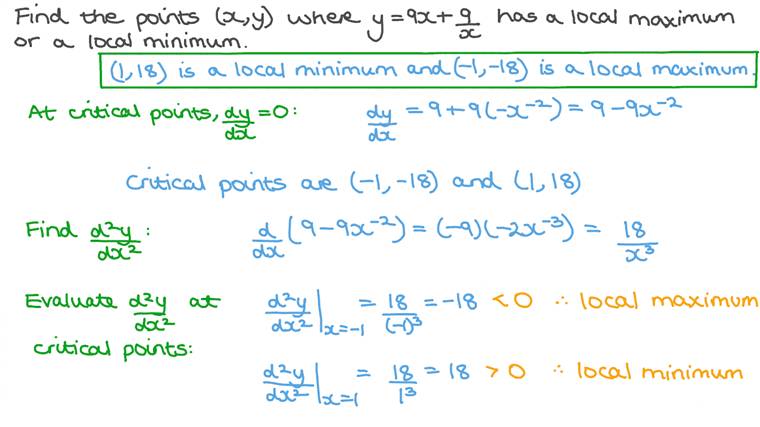 Find the points (x,y) where y = 9x + 9/x has a local maximum
or a local minimum.
(1,18) is a local minimum and (-1,-18) is a local maximum.
At critical points, dy/dx = 0: dy/dx = 9 + 9(-x⁻²) = 9 - 9x⁻²
Critical points are (-1,-18) and (1,18)
Find d²y/dx²: d/dx (9 - 9x⁻²) = (-9)(-2x⁻³) = 18/x³
Evaluate d²y/dx² at d²y/dx² |x=-1 = 18/(-1)³ = -18 < 0 ∴ local maximum
critical points:
d²y/dx² |x=1 = 18/1³ = 18 > 0 ∴ local minimum